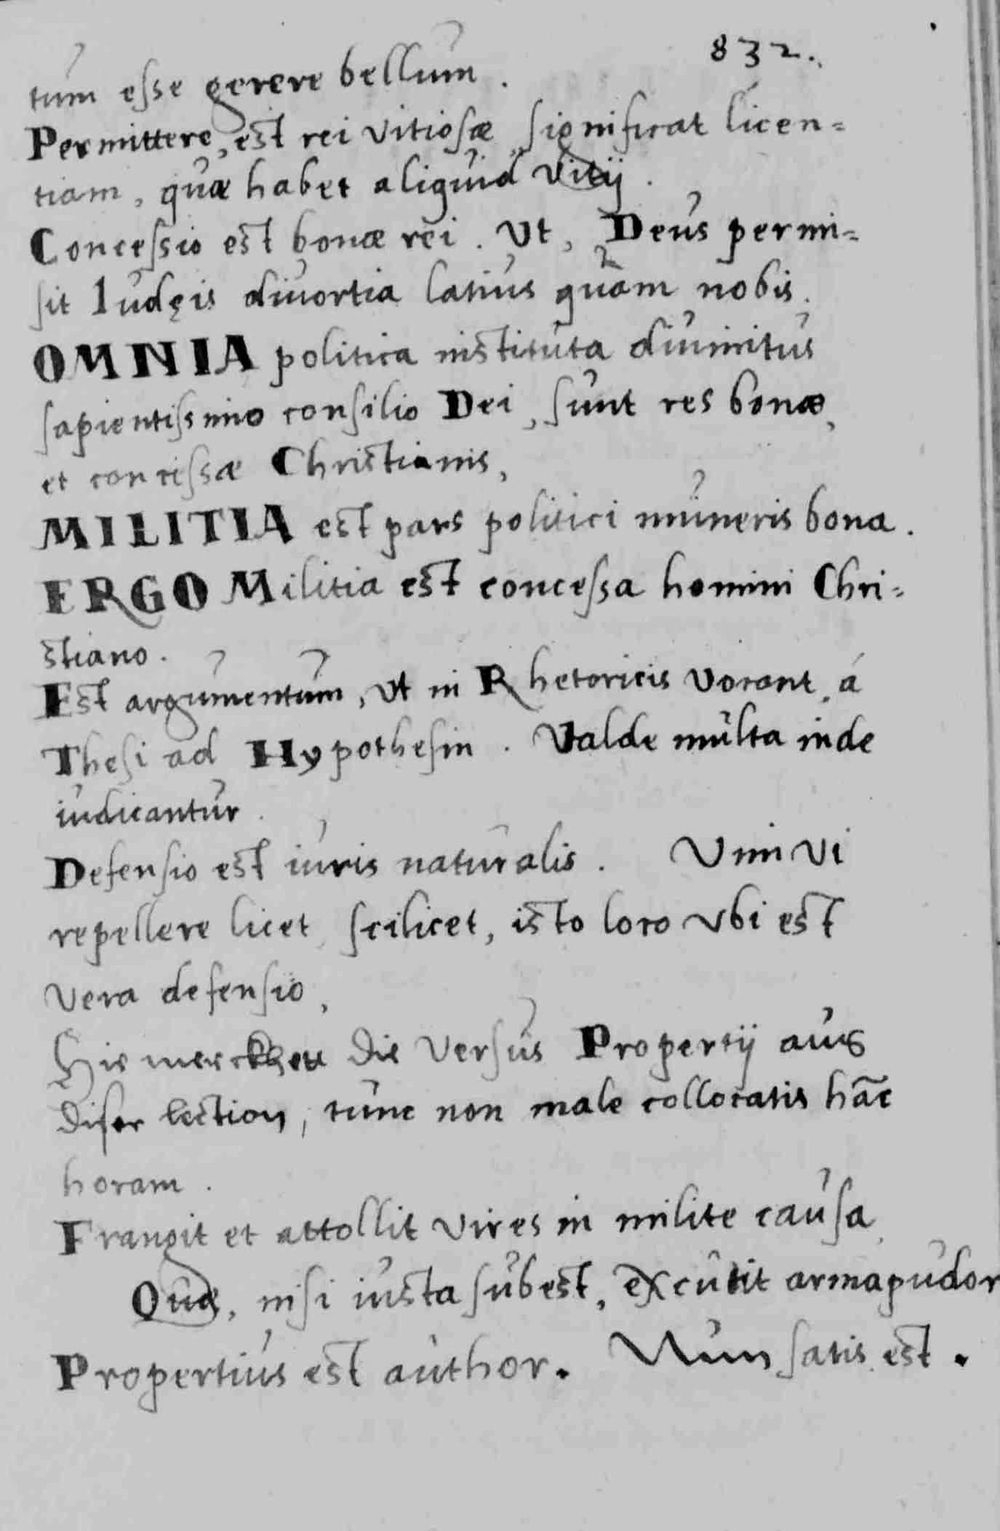 832.
tum esse gerere bellum.
Permittere, est rei vitiosæ, significat licen=
tiam, quæ habet aliquid vitij.
Concessio est bonæ rei. Ut, Deus permi=
sit Iudęis divortia latius quàm nobis.
OMNIA politica instituta divinitus
sapientissimo consilio Dei, sunt res bonæ,
et concessæ Christianis,
MILITIA est pars politici muneris bona.
ERGO Militia est concessa homini Chri=
stiano.
Est argumentum, ut in Rhetoricis vocant, á
Thesi ad Hypothesin. Valde multa inde
iudicantur.
Defensio est iuris naturalis. Vim vi
repellere licet, scilicet, isto loco ubi est
vera defensio,
Hie merckhen die versus Propertij aus
diser lection, tunc non male collocatis hāc
horam.
Frangit et attollit vires in milite causa,
Quæ, nisi iusta subest, excutit arma pudor
Propertius est author. Nun satis est.